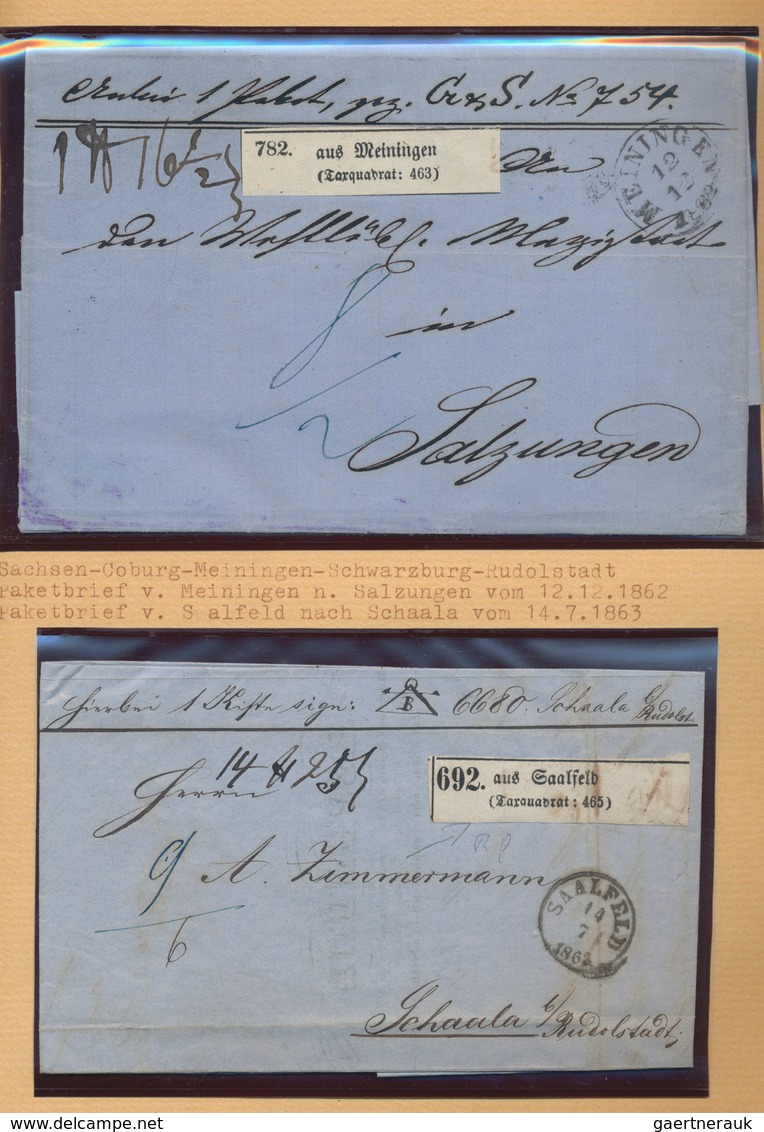 1 Paket, G & S. No 754.
1 16 1/2
782. aus Meiningen
(Taxquadrat: 463)
An
MEININGEN
12
12
den Wohllöbl. Magistrat
8
in
/2
Salzungen
Sachsen-Coburg-Meiningen-Schwarzburg-Rudolstadt
Paketbrief v. Meiningen n. Salzungen vom 12.12.1862
Paketbrief v. S alfeld nach Schaala vom 14.7.1863
Hierbei 1 Kiste sign: B 6680. Schaala b/ Rudolst.
14 ℔ 25
692. aus Saalfeld
(Taxquadrat: 465)
Herrn
9 A. Zimmermann
6
SAALFELD
14
7
1863
Schaala b/ Rudolstadt
Delcampe.net
gaertnerauk